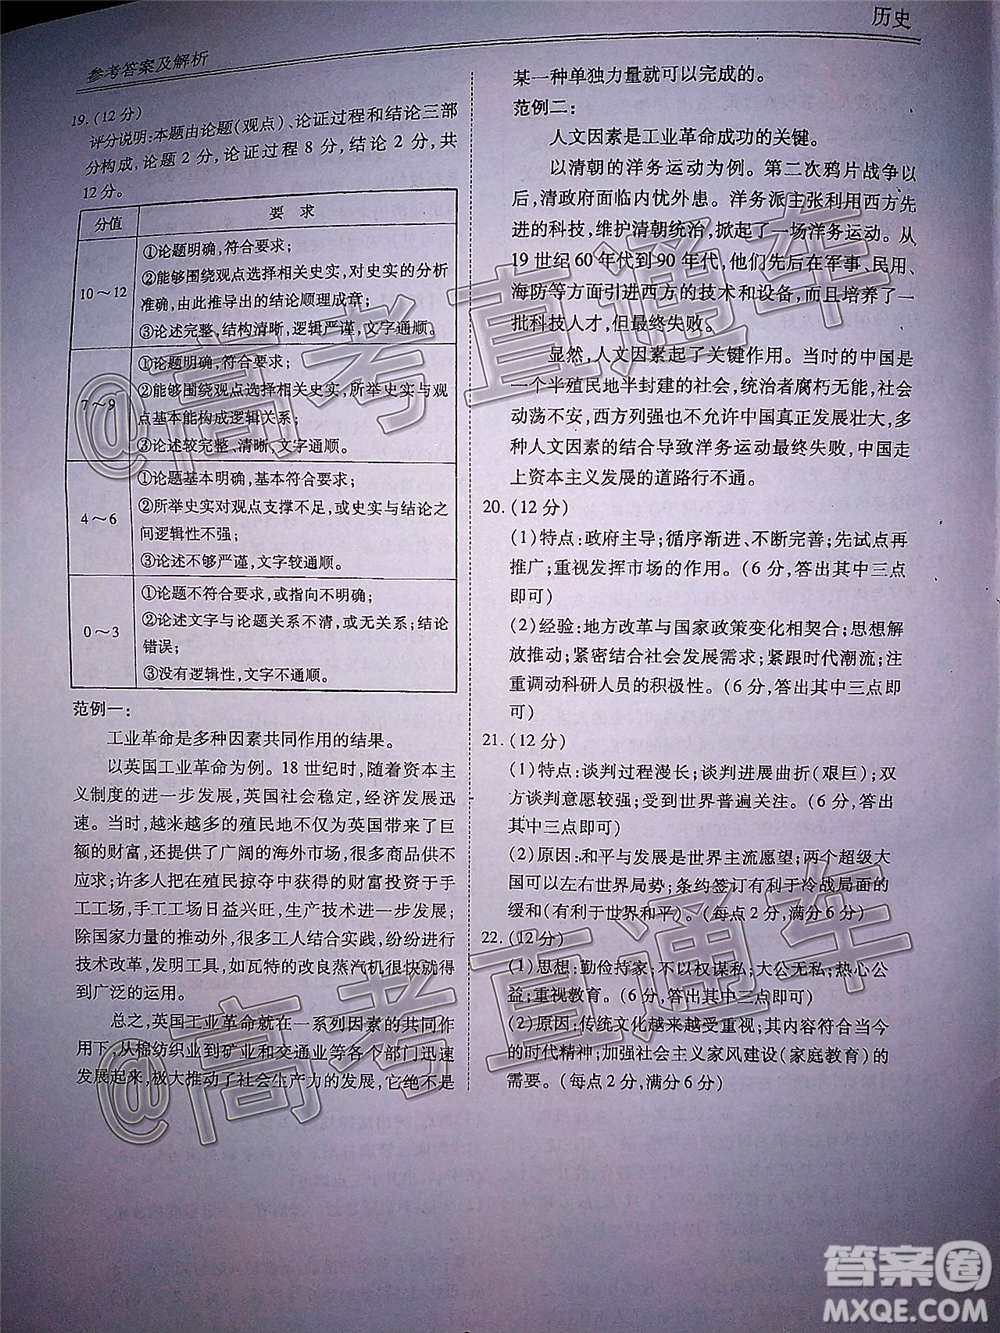 历史
参考答案及解析
19.(12 分)
评分说明:本题由论题(观点)、论证过程和结论三部
分构成,论题 2 分,论证过程 8 分,结论 2 分,共
12 分。
分值 要 求
10～12
①论题明确,符合要求;
②能够围绕观点选择相关史实,对史实的分析
准确,由此推导出的结论顺理成章;
③论述完整,结构清晰,逻辑严谨,文字通顺。
7～9
①论题明确,符合要求;
②能够围绕观点选择相关史实,所举史实与观
点基本能构成逻辑关系;
③论述较完整、清晰,文字通顺。
4～6
①论题基本明确,基本符合要求;
②所举史实对观点支撑不足,或史实与结论之
间逻辑性不强;
③论述不够严谨,文字较通顺。
0～3
①论题不符合要求,或指向不明确;
②论述文字与论题关系不清,或无关系;结论
错误;
③没有逻辑性,文字不通顺。
范例一:
工业革命是多种因素共同作用的结果。
以英国工业革命为例。18 世纪时,随着资本主
义制度的进一步发展,英国社会稳定,经济发展迅
速。当时,越来越多的殖民地不仅为英国带来了巨
额的财富,还提供了广阔的海外市场,很多商品供不
应求;许多人把在殖民掠夺中获得的财富投资于手
工工场,手工工场日益兴旺,生产技术进一步发展;
除国家力量的推动外,很多工人结合实践,纷纷进行
技术改革,发明工具,如瓦特的改良蒸汽机很快就得
到广泛的运用。
总之,英国工业革命就在一系列因素的共同作
用下,从棉纺织业到矿业和交通业等各个部门迅速
发展起来,极大推动了社会生产力的发展,它绝不是
某一种单独力量就可以完成的。
范例二:
人文因素是工业革命成功的关键。
以清朝的洋务运动为例。第二次鸦片战争以
后,清政府面临内忧外患。洋务派主张利用西方先
进的科技,维护清朝统治,掀起了一场洋务运动。从
19 世纪 60 年代到 90 年代,他们先后在军事、民用、
海防等方面引进西方的技术和设备,而且培养了一
批科技人才,但最终失败。
显然,人文因素起了关键作用。当时的中国是
一个半殖民地半封建的社会,统治者腐朽无能,社会
动荡不安,西方列强也不允许中国真正发展壮大,多
种人文因素的结合导致洋务运动最终失败,中国走
上资本主义发展的道路行不通。
20.(12 分)
(1)特点:政府主导;循序渐进、不断完善;先试点再
推广;重视发挥市场的作用。(6 分,答出其中三点
即可)
(2)经验:地方改革与国家政策变化相契合;思想解
放推动;紧密结合社会发展需求;紧跟时代潮流;注
重调动科研人员的积极性。(6 分,答出其中三点即
可)
21.(12 分)
(1)特点:谈判过程漫长;谈判进展曲折(艰巨);双
方谈判意愿较强;受到世界普遍关注。(6 分,答出
其中三点即可)
(2)原因:和平与发展是世界主流愿望;两个超级大
国可以左右世界局势;条约签订有利于冷战局面的
缓和(有利于世界和平)。(每点 2 分,满分 6 分)
22.(12 分)
(1)思想:勤俭持家;不以权谋私;大公无私;热心公
益;重视教育。(6 分,答出其中三点即可)
(2)原因:传统文化越来越受重视;其内容符合当今
的时代精神;加强社会主义家风建设(家庭教育)的
需要。(每点 2 分,满分 6 分)
@高考直通车
@高考直通车
答案圈
MXQE.COM